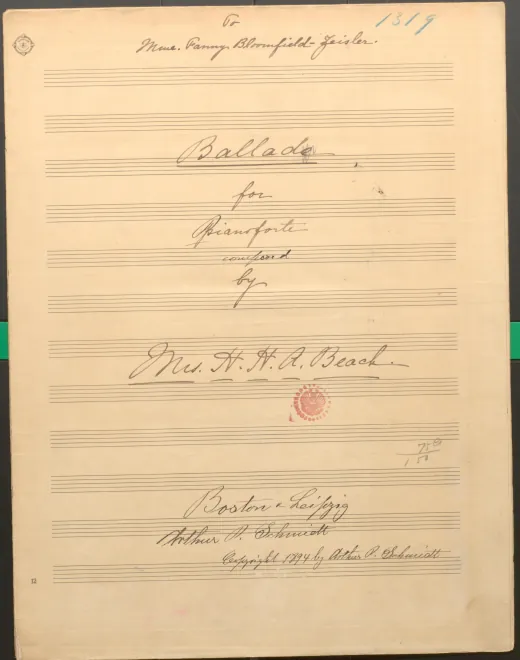 To
1319
Mme. Fanny Bloomfield-Zeisler.
Ballade
for
Pianoforte
composed
by
Mrs. H. H. A. Beach.
Boston & Leipzig
Arthur P. Schmidt
Copyright 1894 by Arthur P. Schmidt